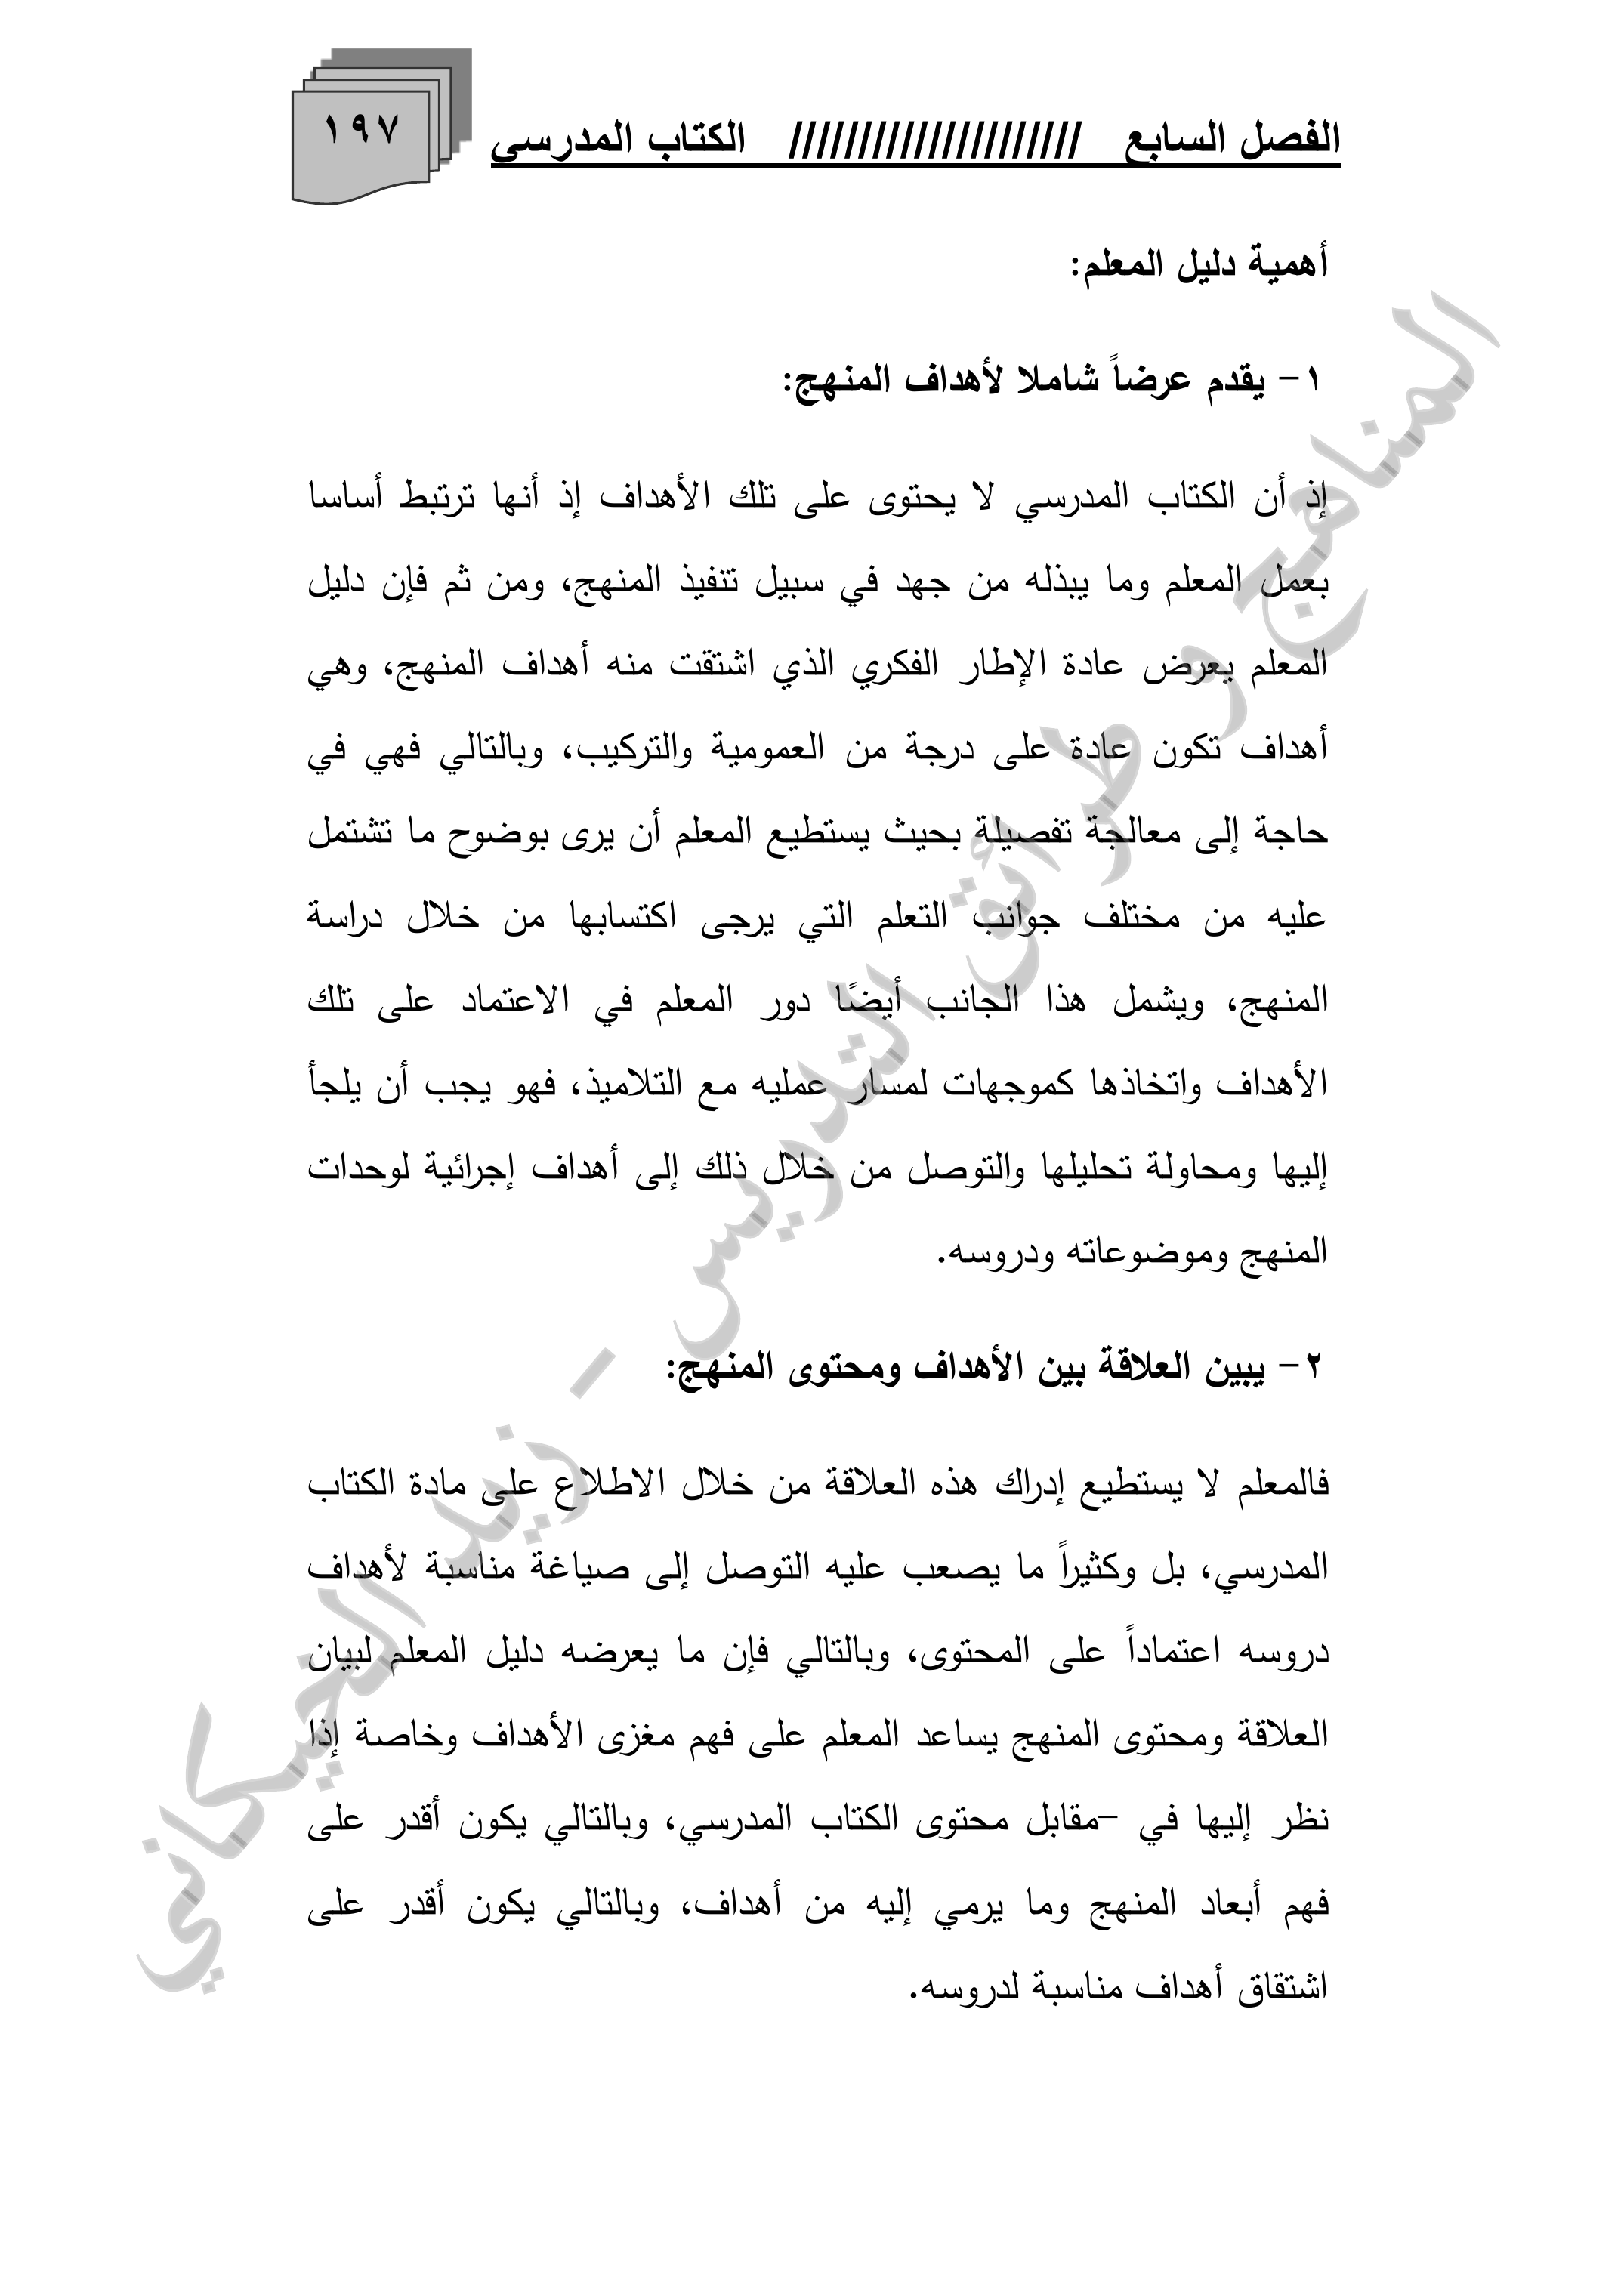 الفصل السابع ///////////////////// الكتاب المدرسي
١٩٧
أهمية دليل المعلم:
١- يقدم عرضاً شاملا لأهداف المنهج:
إذ أن الكتاب المدرسي لا يحتوى على تلك الأهداف إذ أنها ترتبط أساسا
بعمل المعلم وما يبذله من جهد في سبيل تنفيذ المنهج، ومن ثم فإن دليل
المعلم يعرض عادة الإطار الفكري الذي اشتقت منه أهداف المنهج، وهي
أهداف تكون عادة على درجة من العمومية والتركيب، وبالتالي فهي في
حاجة إلى معالجة تفصيلة بحيث يستطيع المعلم أن يرى بوضوح ما تشتمل
عليه من مختلف جوانب التعلم التي يرجى اكتسابها من خلال دراسة
المنهج، ويشمل هذا الجانب أيضًا دور المعلم في الاعتماد على تلك
الأهداف واتخاذها كموجهات لمسار عمليه مع التلاميذ، فهو يجب أن يلجأ
إليها ومحاولة تحليلها والتوصل من خلال ذلك إلى أهداف إجرائية لوحدات
المنهج وموضوعاته ودروسه.
٢- يبين العلاقة بين الأهداف ومحتوى المنهج:
فالمعلم لا يستطيع إدراك هذه العلاقة من خلال الاطلاع على مادة الكتاب
المدرسي، بل وكثيراً ما يصعب عليه التوصل إلى صياغة مناسبة لأهداف
دروسه اعتماداً على المحتوى، وبالتالي فإن ما يعرضه دليل المعلم لبيان
العلاقة ومحتوى المنهج يساعد المعلم على فهم مغزى الأهداف وخاصة إذا
نظر إليها في –مقابل محتوى الكتاب المدرسي، وبالتالي يكون أقدر على
فهم أبعاد المنهج وما يرمي إليه من أهداف، وبالتالي يكون أقدر على
اشتقاق أهداف مناسبة لدروسه.
المناهج و طرائق التدريس - زيد الخيكاني